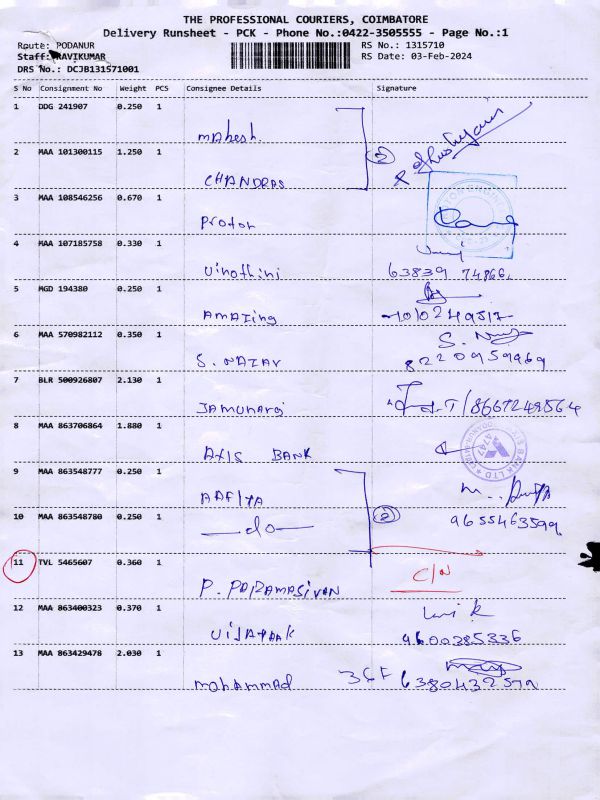 THE PROFESSIONAL COURIERS, COIMBATORE
Delivery Runsheet - PCK - Phone No.:0422-3505555 - Page No.:1
Route: PODANUR RS No.: 1315710
Staff: RAVIKUMAR RS Date: 03-Feb-2024
DRS No.: DCJB131571001
S No Consignment No Weight PCS Consignee Details Signature
1 DDG 241907 0.250 1
Mahesh.
2 MAA 101300115 1.250 1 2
CHANDRAS
3 MAA 108546256 0.670 1
Proton
4 MAA 107185758 0.330 1
Vinothini 63839 74866
5 MGD 194380 0.250 1
AMAZing
6 MAA 570982112 0.350 1 S.
S. NAZAR 8220959969
7 BLR 500926807 2.130 1
JAMUNARAJ T/8667249564
8 MAA 863706864 1.880 1
AXIS BANK
9 MAA 863548777 0.250 1
AAFIYA
10 MAA 863548780 0.250 1 2
—do— 9655463599
11 TVL 5465607 0.360 1
P. PARAMASIVAN C/N
12 MAA 863400323 0.370 1
VIJAYAAK 9600385336
13 MAA 863429478 2.030 1
Mohammad 6380432579